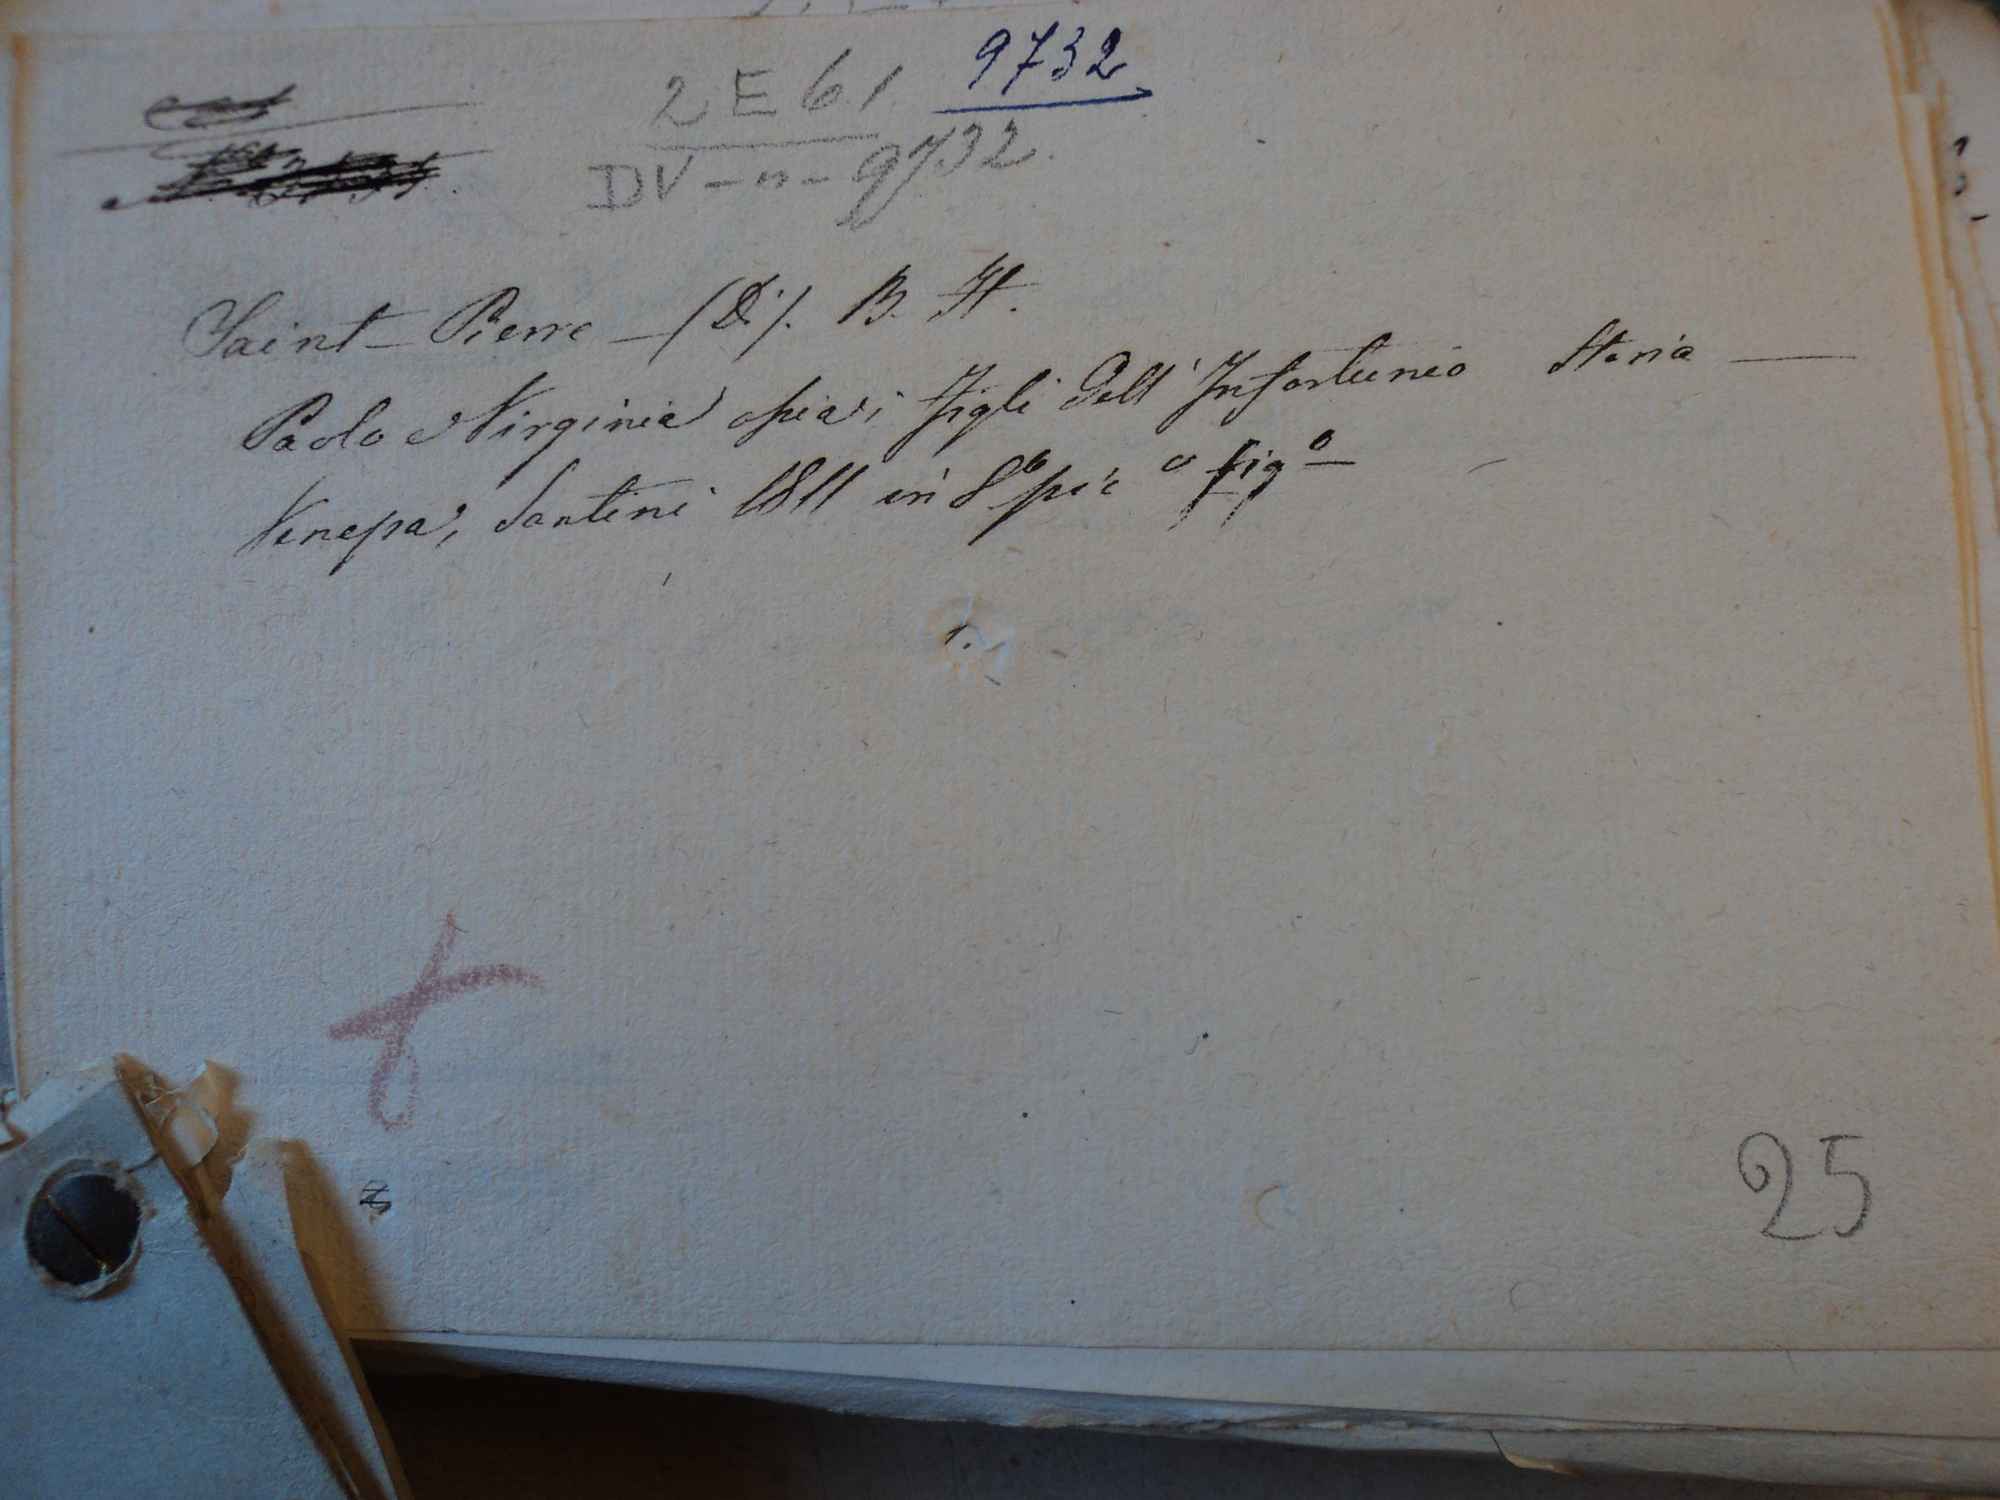 9732
2 E 61
DV - n - 9732.
Saint-Pierre - (Di). B. H.
Paolo e Virginia ossia i Figli Dell' Infortunio Storia —
Venezia, Santini 1811 in 8º pic º figº
25